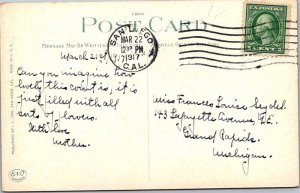 POST CARD
MESSAGE MAY BE WRITTEN
SAN DIEGO
MAR 22
12 30 PM
1917
CAL.
U.S. POSTAGE
March 21st
Can you imagine how
lovely this court is, it is
just filled with all
sorts of flowers.
With love
Mother.
Miss Frances Louise
143 Lafayette Avenue, N.E.
Grand Rapids.
Michigan.